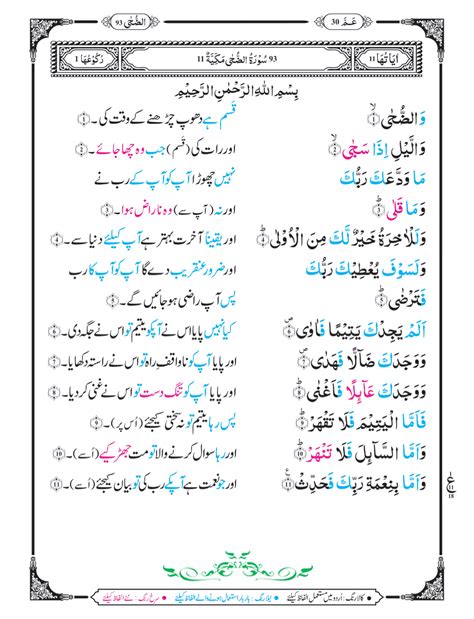 عَـمّ 30 الضُّحٰی 93
اٰيَاتُهَا 11 93 سُوْرَةُ الضُّحٰی مَكِّيَّةٌ 11 رُكُوْعُهَا 1
بِسْمِ اللهِ الرَّحْمٰنِ الرَّحِيْمِ
وَالضُّحٰیۙ﴿۱﴾ قسم ہے دھوپ چڑھنے کے وقت کی۔﴿۱﴾
وَالَّيْلِ اِذَا سَجٰیۙ﴿۲﴾ اور رات کی (قسم) جب وہ چھا جائے۔﴿۲﴾
مَا وَدَّعَكَ رَبُّكَ نہیں چھوڑا آپ کو آپ کے رب نے
وَمَا قَلٰیؕ﴿۳﴾ اور نہ (آپ سے) وہ ناراض ہوا۔﴿۳﴾
وَلَلْاٰخِرَةُ خَيْرٌ لَّكَ مِنَ الْاُوْلٰیؕ﴿۴﴾ اور یقیناً آخرت بہتر ہے آپ کیلئے دنیا سے۔﴿۴﴾
وَلَسَوْفَ يُعْطِيْكَ رَبُّكَ اور ضرور عنقریب دے گا آپ کو آپ کا رب
فَتَرْضٰیؕ﴿۵﴾ پس آپ راضی ہو جائیں گے۔﴿۵﴾
اَلَمْ يَجِدْكَ يَتِيْمًا فَاٰوٰی۪﴿۶﴾ کیا نہیں پایا اس نے آپکو یتیم تو اس نے جگہ دی۔﴿۶﴾
وَوَجَدَكَ ضَآلًّا فَهَدٰی۪﴿۷﴾ اور پایا آپ کو ناواقفِ راہ تو اس نے راستہ دکھایا۔﴿۷﴾
وَوَجَدَكَ عَآىِٕلًا فَاَغْنٰیؕ﴿۸﴾ اور پایا آپ کو تنگ دست تو اس نے غنی کر دیا۔﴿۸﴾
فَاَمَّا الْيَتِيْمَ فَلَا تَقْهَرْؕ﴿۹﴾ پس رہا یتیم تو نہ سختی کیجئے (اُس پر)۔﴿۹﴾
وَاَمَّا السَّآىِٕلَ فَلَا تَنْهَرْؕ﴿۱۰﴾ اور رہا سوال کرنے والا تو مت جھڑکیے (اُسے)۔﴿۱۰﴾
وَاَمَّا بِنِعْمَةِ رَبِّكَ فَحَدِّثْ﴿۱۱﴾ اور جو نعمت ہے آپکے رب کی تو بیان کیجئے (اُسے)۔﴿۱۱﴾
کالا رنگ : اُردو میں مستعمل الفاظ کیلئے نیلا رنگ : بار بار استعمال ہونے والے الفاظ کیلئے سرخ رنگ : نئے الفاظ کیلئے